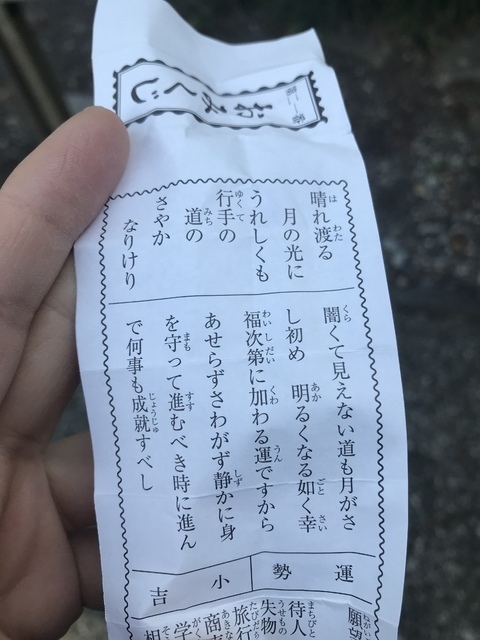 おみくじ
晴れ渡る
月の光に
うれしくも
行手の
道の
さやか
なりけり
闇くて見えない道も月がさ
し初め 明るくなる如く幸
福次第に加わる運ですから
あせらずさわがず静かに身
を守って進むべき時に進ん
で何事も成就すべし
運勢 小吉
願望
待人
失物
旅行
商売
学